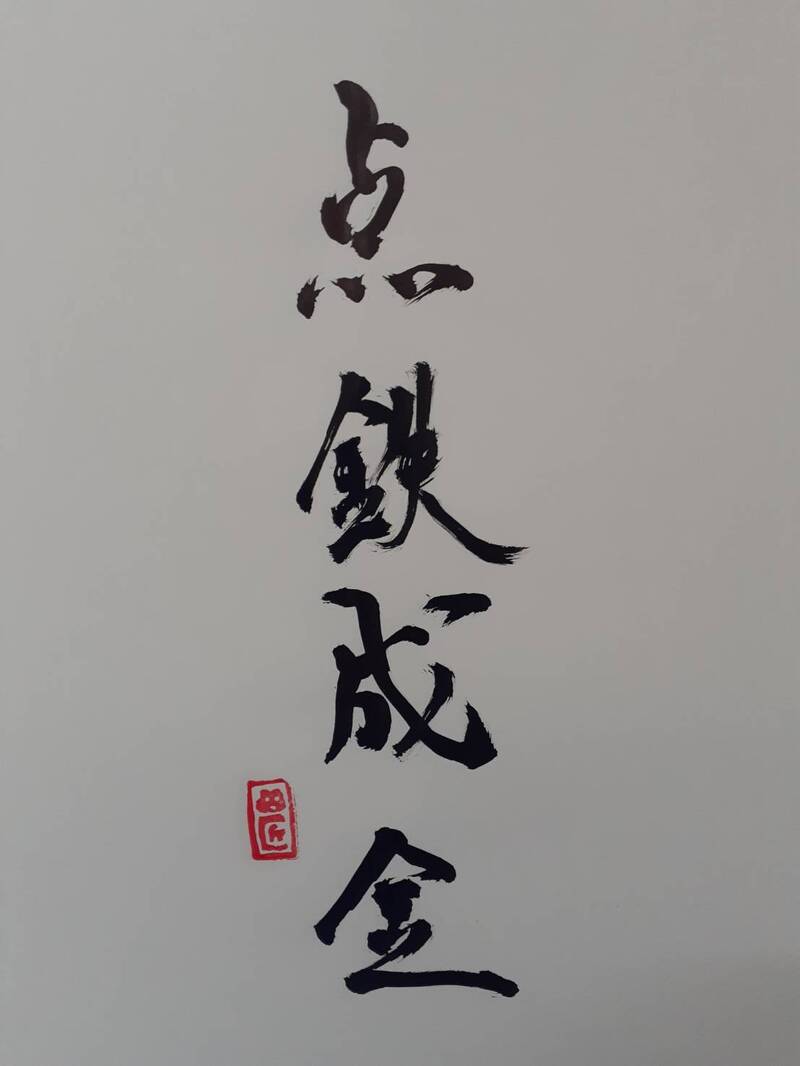 点鉄成金